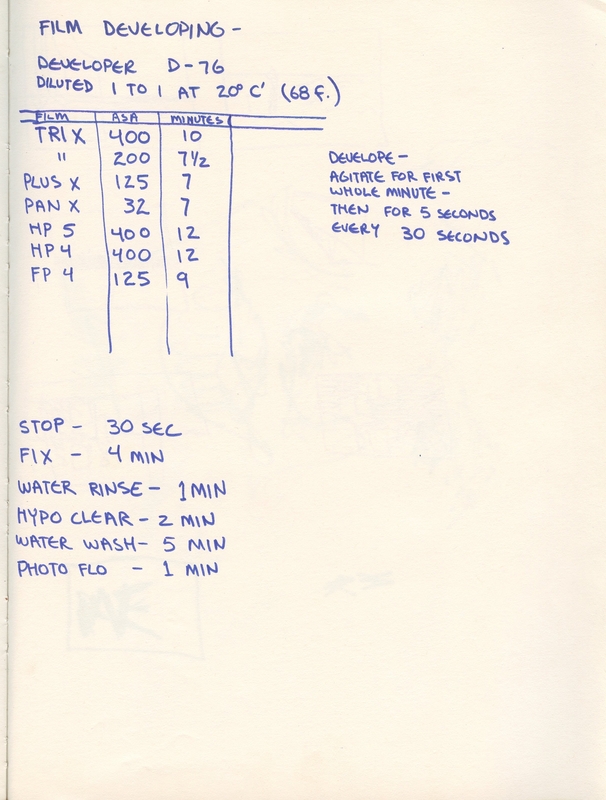 FILM DEVELOPING -
DEVELOPER D-76
DILUTED 1 TO 1 AT 20° C' (68 F.)
FILM ASA MINUTES
TRI X 400 10
" 200 7½
PLUS X 125 7
PAN X 32 7
HP 5 400 12
HP 4 400 12
FP 4 125 9
DEVELOPE -
AGITATE FOR FIRST
WHOLE MINUTE -
THEN FOR 5 SECONDS
EVERY 30 SECONDS
STOP - 30 SEC
FIX - 4 MIN
WATER RINSE - 1 MIN
HYPO CLEAR - 2 MIN
WATER WASH - 5 MIN
PHOTO FLO - 1 MIN